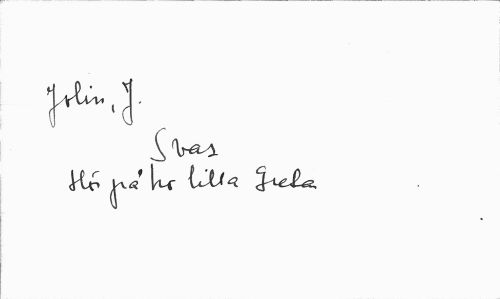 Jolin, J.
Svar
Hör på ho lilla Greta